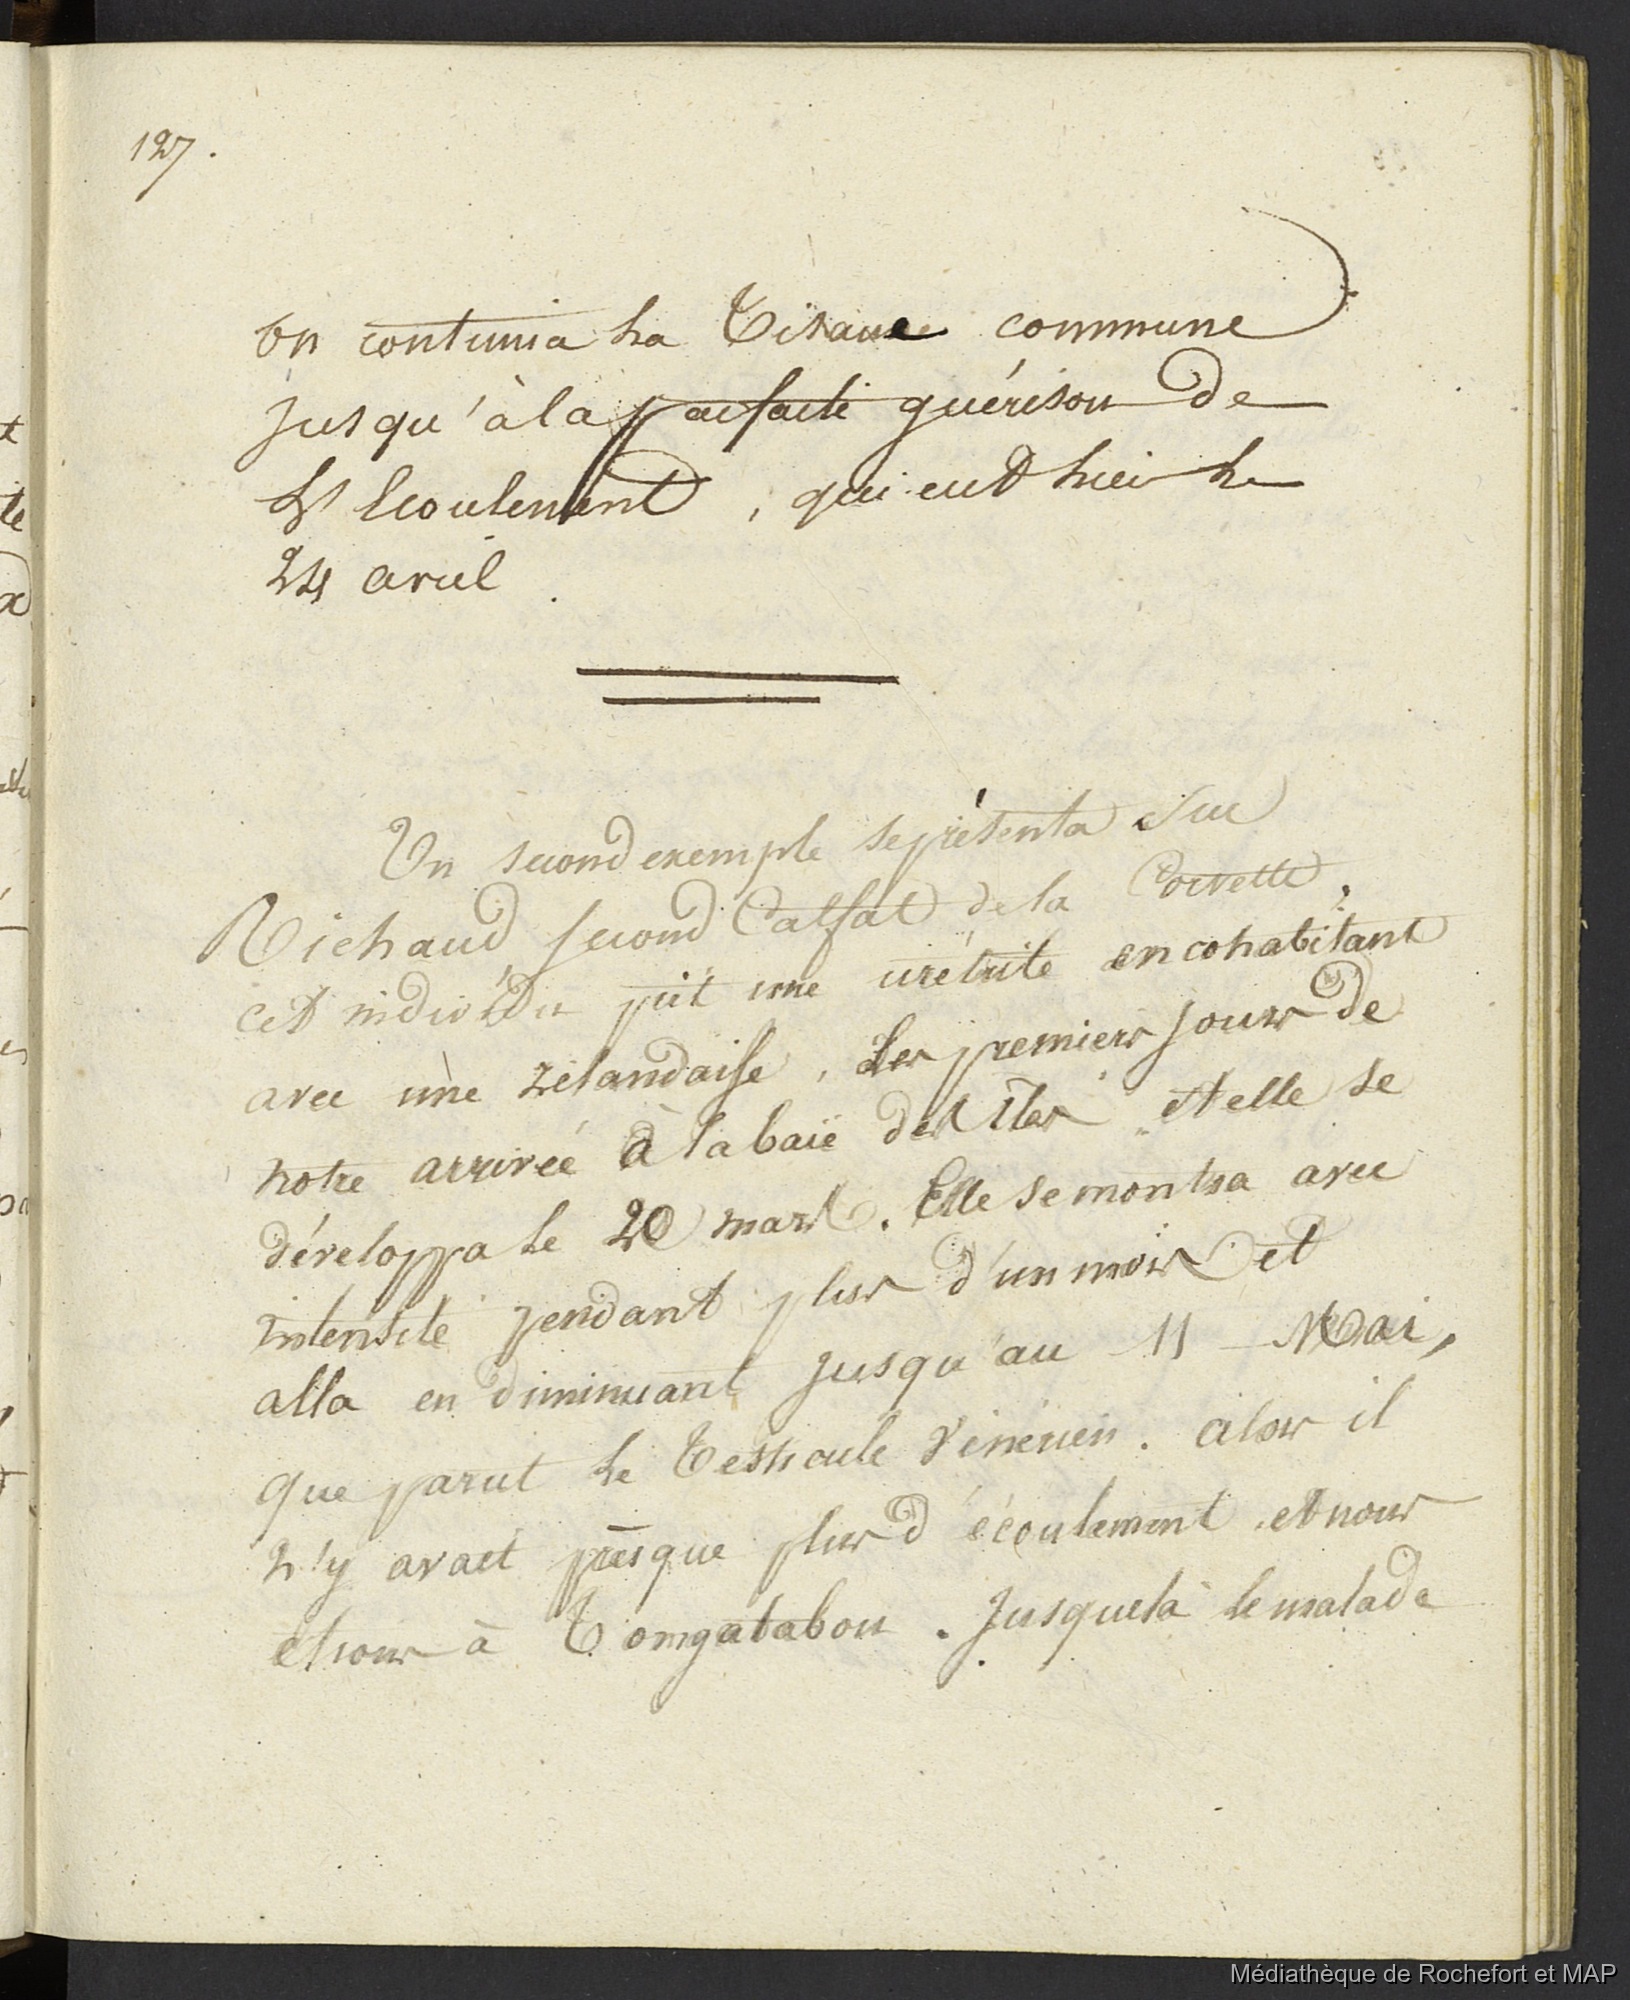 127.
on continua la Tisane commune
jusqu'à la parfaite guérison de
l'Ecoulement, qui eut lieu le
24 avril.
Un second exemple se présenta Sur
Richaud second Calfat de la Corvette,
cet individu prit une urétrite en cohabitant
avec une zélandaise, Les premiers jours de
notre arrivée à la baie des Iles. Et elle se
développa le 20 mars. Elle se montra avec
intensité pendant plus d'un mois et
alla en diminuant jusqu'au 11 Mai,
que parut le Testicule Vénérien. alors il
n'y avait presque plus d'écoulement et nous
etions à Tongatabou. Jusque là le malade
Médiathèque de Rochefort et MAP